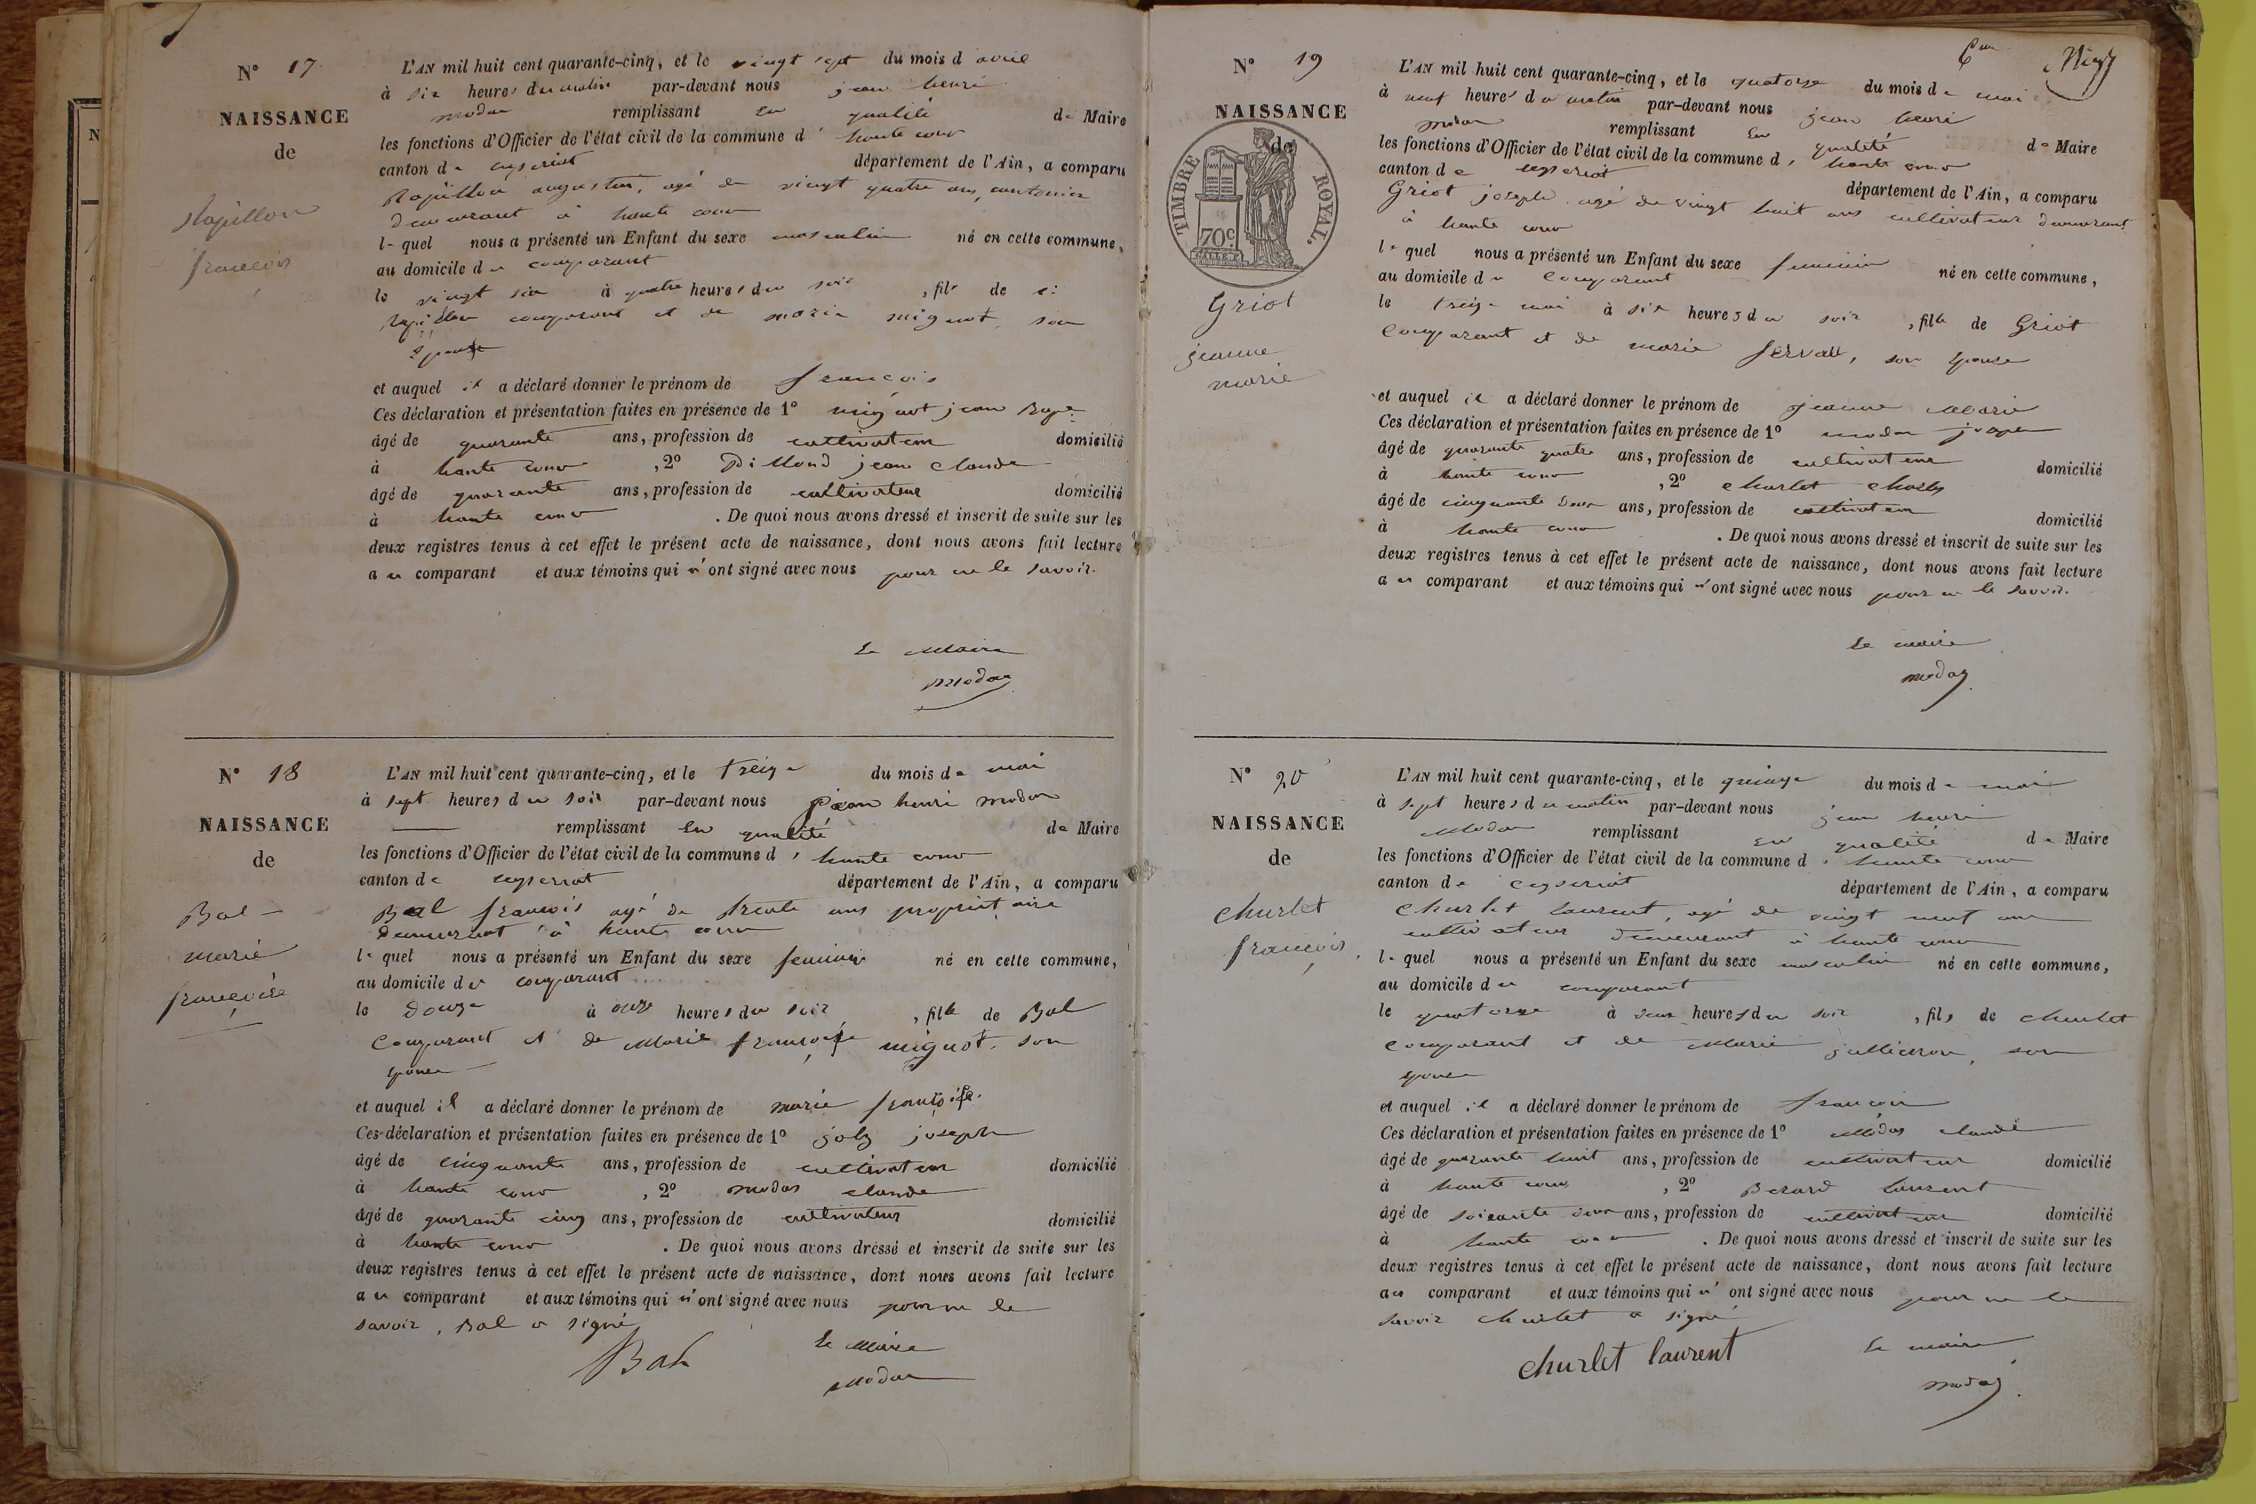 N° 17
NAISSANCE
de
Rapillon
françois
L'AN mil huit cent quarante-cinq, et le vingt sept du mois d avril
à six heures du matin par-devant nous jean henri
modas remplissant en qualité de Maire
les fonctions d'Officier de l'état civil de la commune d' haute cour
canton de ceyseriat département de l'Ain, a comparu
Rapillon augustin, agé de vingt quatre ans, cantonier
demeurant à haute cour
lequel nous a présenté un Enfant du sexe masculin né en cette commune,
au domicile du comparant
le vingt six à quatre heures du soir, fils de
Rapillon comparant et de marie mignot, son
épouse
et auquel il a déclaré donner le prénom de françois
Ces déclaration et présentation faites en présence de 1° mignot jean
âgé de quarante ans, profession de cultivateur domicilié
à haute cour, 2° jean claude
âgé de quarante ans, profession de cultivateur domicilié
à haute cour. De quoi nous avons dressé et inscrit de suite sur les
deux registres tenus à cet effet le présent acte de naissance, dont nous avons fait lecture
au comparant et aux témoins qui n'ont signé avec nous pour ne le savoir.
Le Maire
modas
N° 18
NAISSANCE
de
Bal
marie
françoise
L'AN mil huit cent quarante-cinq, et le treize du mois de mai
à sept heures du soir par-devant nous jean henri modas
remplissant en qualité de Maire
les fonctions d'Officier de l'état civil de la commune d' haute cour
canton de ceyseriat département de l'Ain, a comparu
Bal françois agé de trente ans propriétaire
demeurant à haute cour
lequel nous a présenté un Enfant du sexe feminin né en cette commune,
au domicile du comparant
le douze à onze heures du soir, fille de Bal
comparant et de Marie françoise mignot, son
épouse
et auquel il a déclaré donner le prénom de marie françoise.
Ces déclaration et présentation faites en présence de 1° joly joseph
âgé de cinquante ans, profession de cultivateur domicilié
à haute cour, 2° modas claude
âgé de quarante cinq ans, profession de cultivateur domicilié
à haute cour. De quoi nous avons dressé et inscrit de suite sur les
deux registres tenus à cet effet le présent acte de naissance, dont nous avons fait lecture
au comparant et aux témoins qui n'ont signé avec nous pour ne le
savoir, Bal a signé
Bal
Le Maire
Modas
N° 19
NAISSANCE
de
TIMBRE ROYAL.
70c
Griot
jeanne
marie
L'AN mil huit cent quarante-cinq, et le quatorze du mois de mai
à neuf heures du matin par-devant nous jean henri
modas remplissant en qualité de Maire
les fonctions d'Officier de l'état civil de la commune d' haute cour
canton de ceyseriat département de l'Ain, a comparu
Griot joseph agé de vingt huit ans cultivateur demeurant
à haute cour
lequel nous a présenté un Enfant du sexe feminin né en cette commune,
au domicile du comparant
le treize mai à six heures du soir, fille de Griot
comparant et de marie servas, son épouse
et auquel il a déclaré donner le prénom de jeanne Marie
Ces déclaration et présentation faites en présence de 1° modas
âgé de quarante quatre ans, profession de cultivateur domicilié
à haute cour, 2° churlet
âgé de cinquante deux ans, profession de cultivateur domicilié
à haute cour. De quoi nous avons dressé et inscrit de suite sur les
deux registres tenus à cet effet le présent acte de naissance, dont nous avons fait lecture
au comparant et aux témoins qui n'ont signé avec nous pour ne le savoir.
Le maire
modas
N° 20
NAISSANCE
de
churlet
françois
L'AN mil huit cent quarante-cinq, et le quinze du mois de mai
à sept heures du matin par-devant nous jean henri
Modas remplissant en qualité de Maire
les fonctions d'Officier de l'état civil de la commune d' haute cour
canton de ceyseriat département de l'Ain, a comparu
Churlet laurent, agé de vingt neuf ans
cultivateur demeurant à haute cour
lequel nous a présenté un Enfant du sexe masculin né en cette commune,
au domicile du comparant
le quatorze à deux heures du soir, fils de churlet
comparant et de Marie jullieron, son
épouse
et auquel il a déclaré donner le prénom de françois
Ces déclaration et présentation faites en présence de 1° Modas claude
âgé de quarante huit ans, profession de cultivateur domicilié
à haute cour, 2° Berard laurent
âgé de soixante deux ans, profession de cultivateur domicilié
à haute cour. De quoi nous avons dressé et inscrit de suite sur les
deux registres tenus à cet effet le présent acte de naissance, dont nous avons fait lecture
au comparant et aux témoins qui n'ont signé avec nous pour ne le
savoir churlet a signé
churlet laurent
Le maire
modas